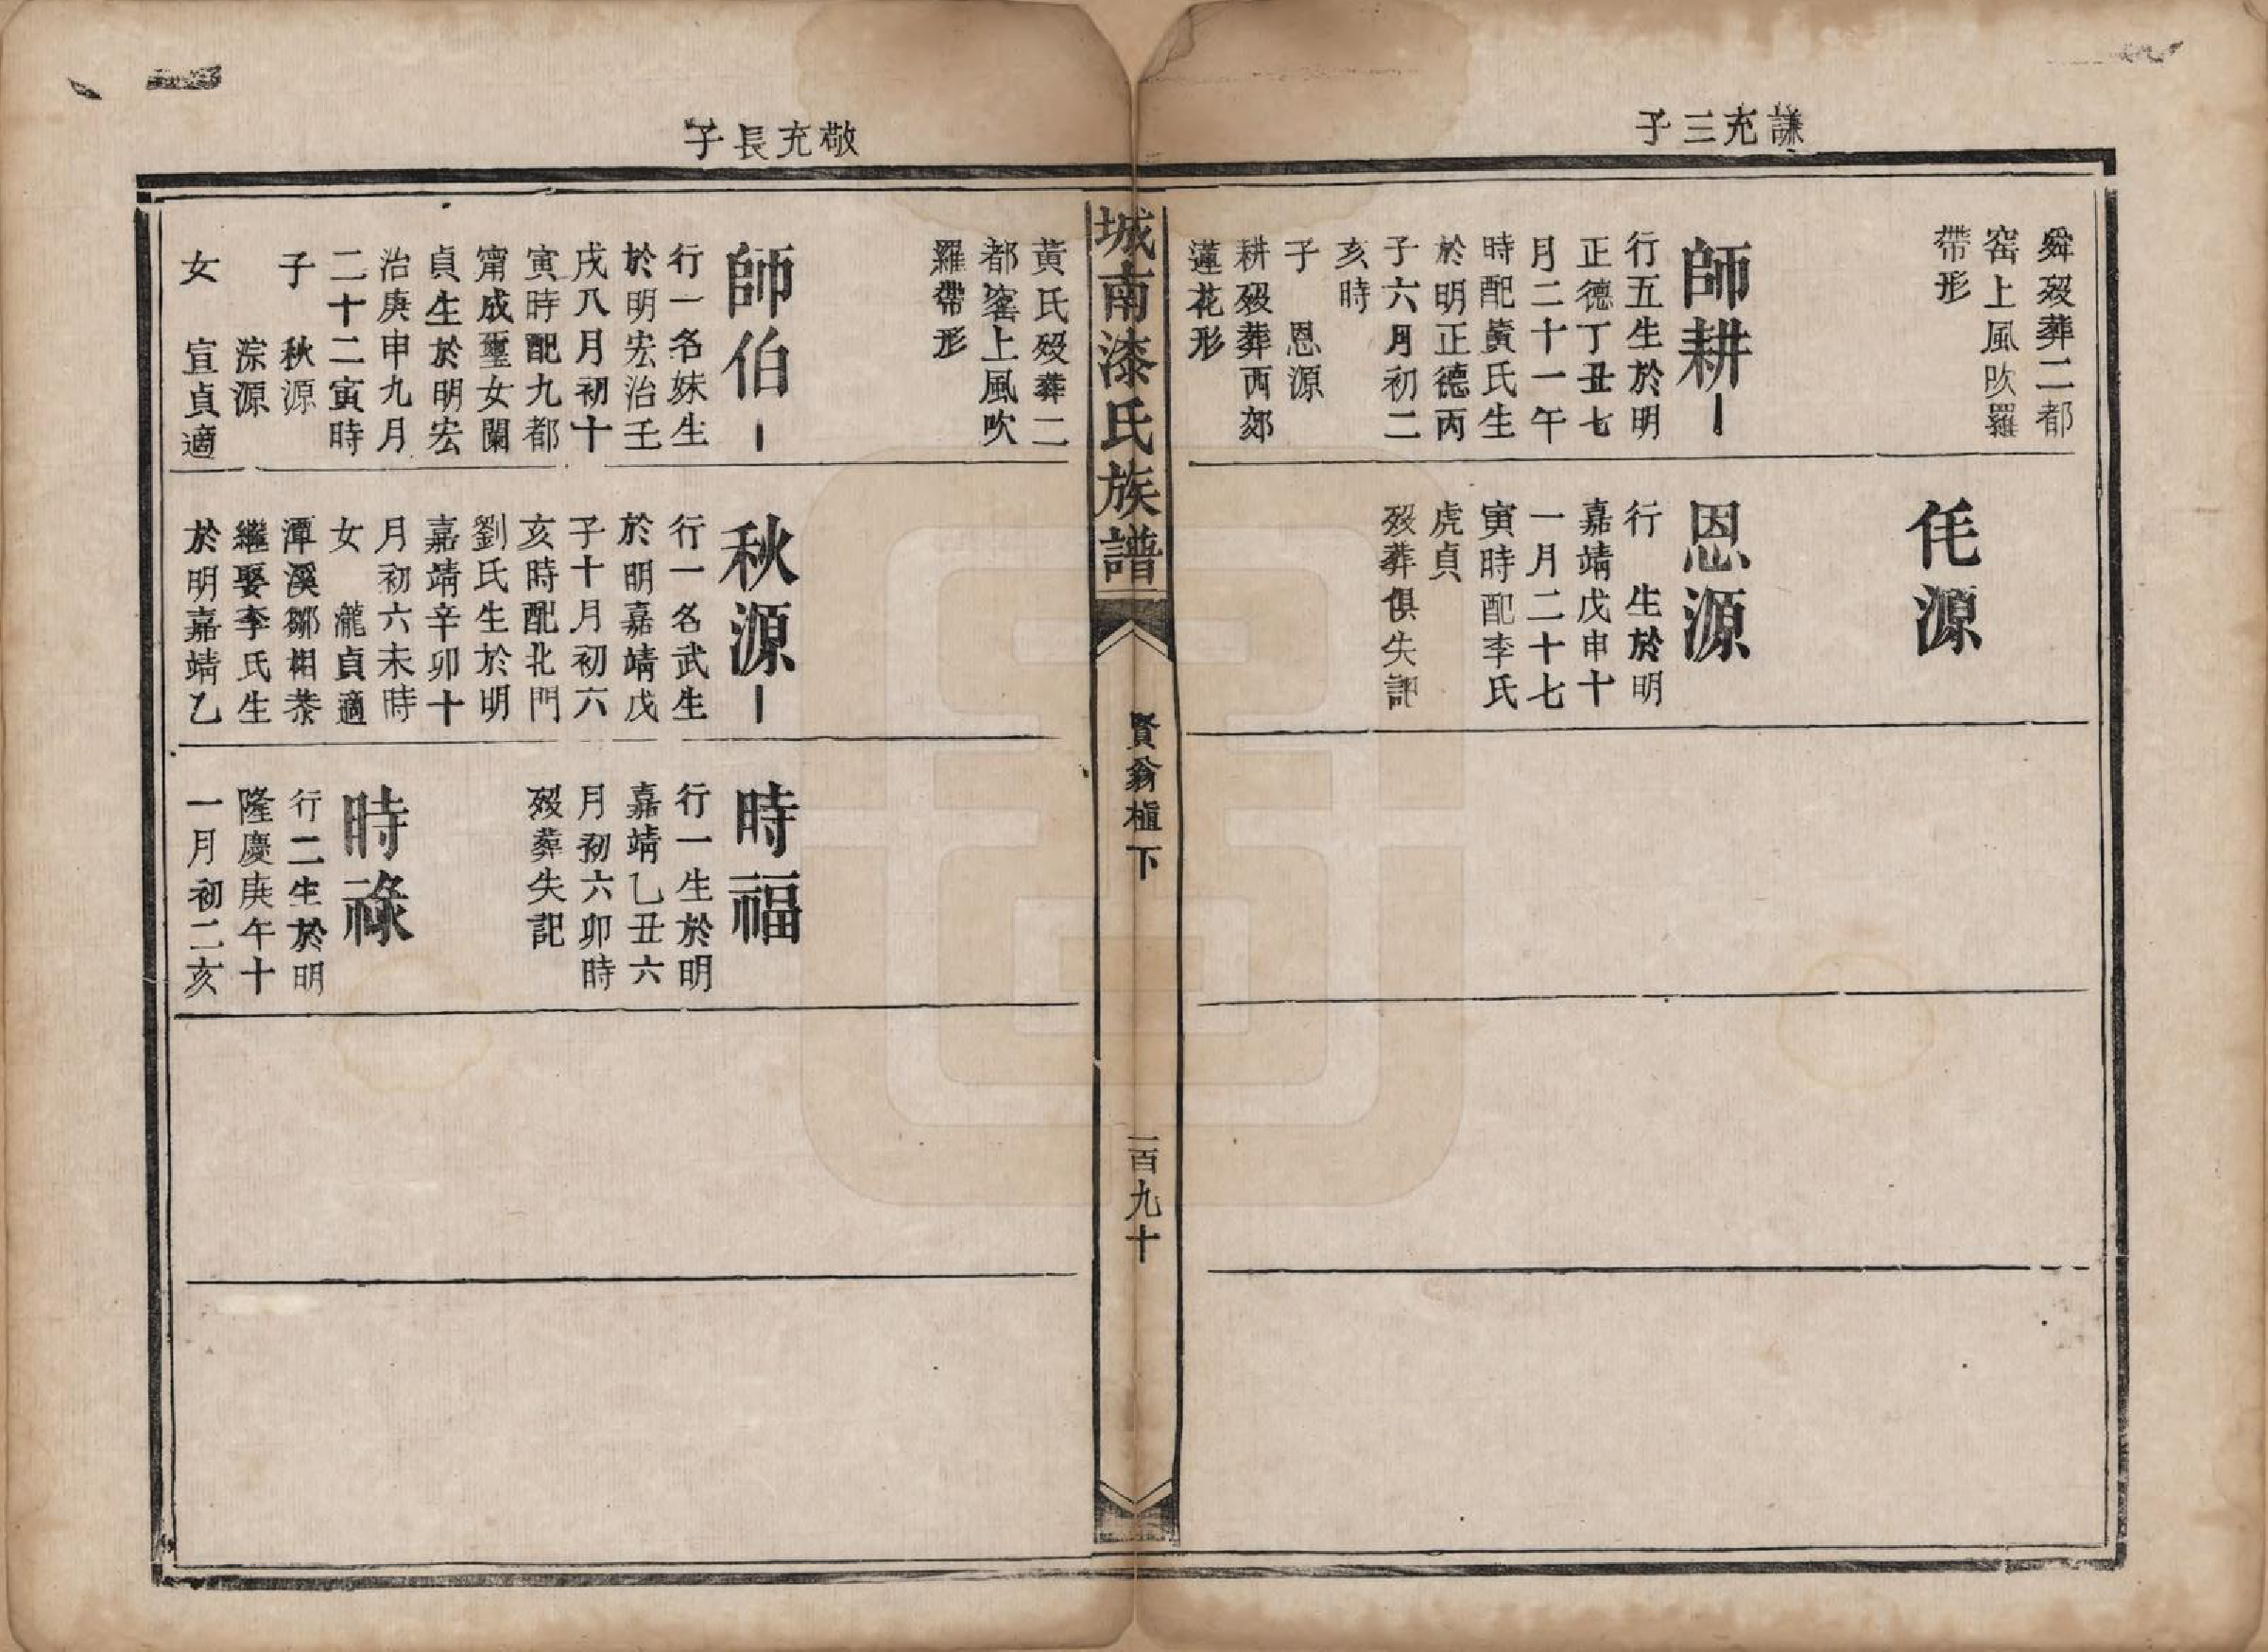 謙充三子
舜歿葬二都
窑上風吹羅
帶形
師耕
行五生於明
正德丁丑七
月二十一午
時配黃氏生
於明正德丙
子六月初二
亥時
子　恩源
耕歿葬西郊
蓮花形
㐌源
恩源
行　生於明
嘉靖戊申十
一月二十七
寅時配李氏
虎貞
歿葬俱失記
城南漆氏族譜
賢翁植下
一百九十
敬充長子
黃氏歿葬二
都窰上風吹
羅帶形
師伯
行一名妹生
於明宏治壬
戌八月初十
寅時配九都
甯成璽女閫
貞生於明宏
治庚申九月
二十二寅時
子　秋源
淙源
女　宣貞適
秋源
行一名武生
於明嘉靖戊
子十月初六
亥時配北門
劉氏生於明
嘉靖辛卯十
月初六未時
女　瀧貞適
潭溪鄒相恭
繼娶李氏生
於明嘉靖乙
時福
行一生於明
嘉靖乙丑六
月初六卯時
歿葬失記
時祿
行二生於明
隆慶庚午十
一月初二亥